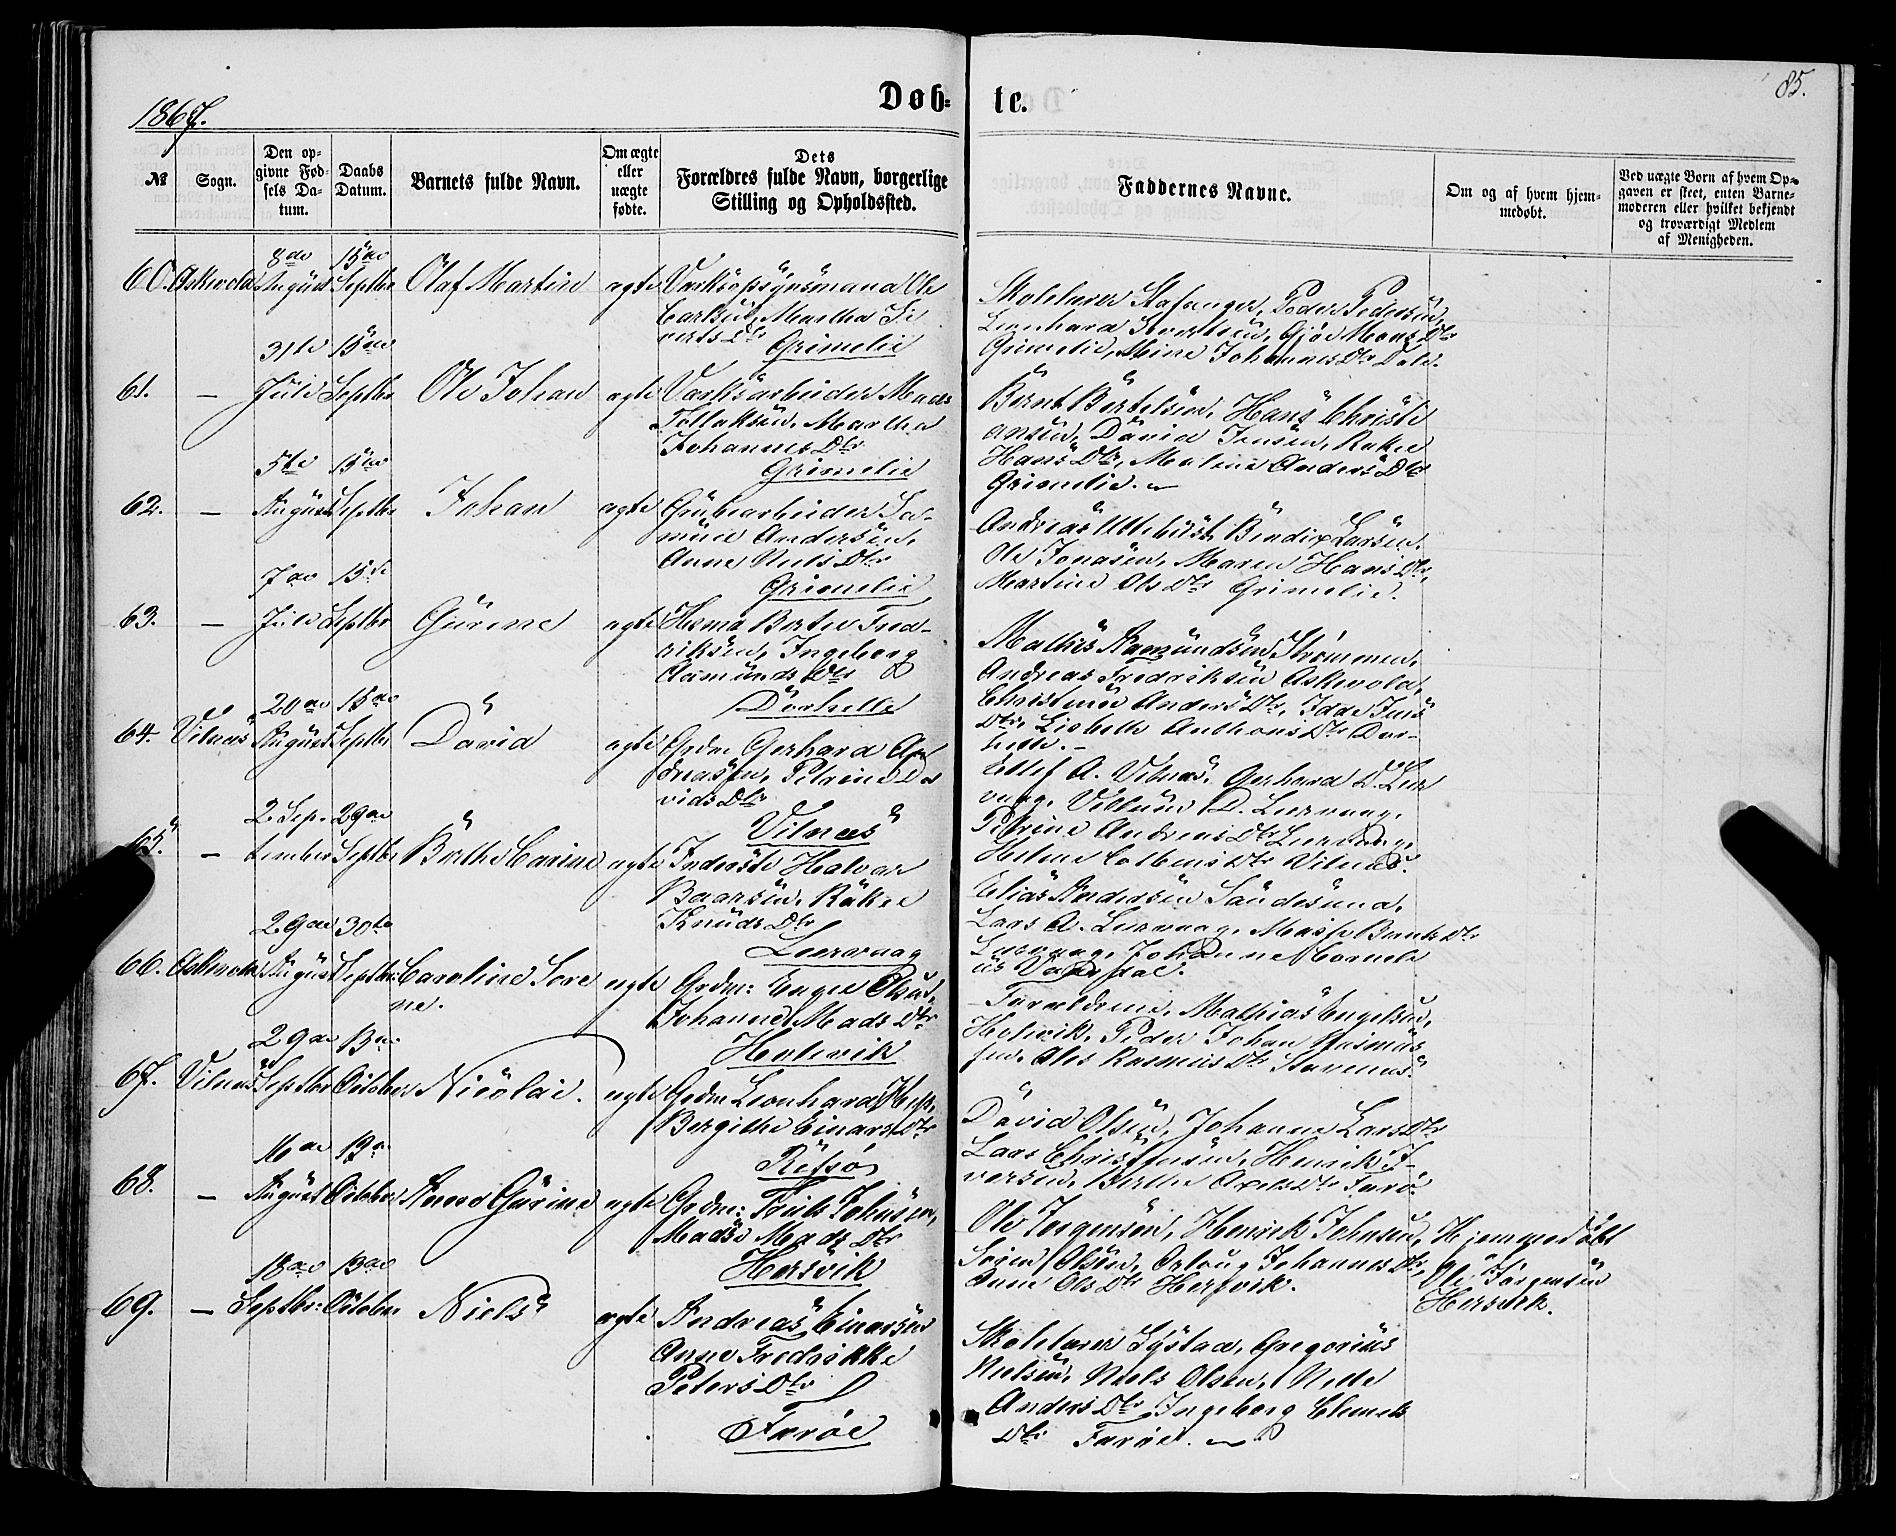 1867.
Døb-te.
85.
№
Sogn.
Den op-
givne Fød-
sels Da-
tum.
Daabs
Datum.
Barnets fulde Navn.
Om ægte
eller
uægte
fødte.
Dets
Forældres fulde Navn, borgerlige
Stilling og Opholdssted.
Faddernes Navne.
Om og af hvem hjem-
medøbt.
Ved uægte Børn af hvem Op-
gaven er skeet, enten Barne-
moderen eller hvilket bekjendt
og troværdigt Medlem
af Menigheden.
60. Askevold 8de August 15de Septbr Olaf Martin ægte Værksopsynsmand Ole
Carlsen, Martha Si
verts Dtr
Grimelie
Skolelærer Stafanger, Peder Pedersen,
Leonhard Sivertsen, Gjøe Mons Dtr
Grimelie, Stine Johannes Dtr Dale.
61. — 31te Juli 15de Septbr Ole Johan ægte Værksarbeider Mads
Tollaksen, Martha
Johannes Dtr
Grimelie
Bernt Bertelsen, Hans Christi
ansen, David Jensen, Rakel
Hans Dtr, Malene Anders Dtr
Grimelie.
62. — 5te August 15de Septbr Johan ægte Grubearbeider Sa-
muel Andersen,
Anne Nils Dtr
Grimelie
Andreas Bendix Larsen,
Ole Jonasen, Maren Hans Dtr,
Martine Ols Dtr Grimelie.
63. — 7de Juli 15de Septbr Gurine ægte Husmd Berthel Fred-
riksen, Ingeborg
Aamunds Dtr
Dørhelle
Mathis Aamundsen Strømmen,
Andreas Fredriksen Askevold,
Christine Anders Dtr, Idde Jens
Dtr, Lisbeth Anthons Dtr Dør-
helle.
64. Vilnæs 20de August 15de Septbr David ægte Grdm Gerhard An
dreasen, Petrine Da
vids Dtr
Vilnæs
Ellef A. Vilnæs, Gerhard D. Leer
vaag, Villum D. Leervaag,
Petrine Andreas Dtr Leervaag,
Helene Colbens Dtr Vilnæs.
65. — 2. Sep-
tember 29de Septbr Berthe Carine ægte Inderste Halvar
Baarsen, Rakel
Knuds Dtr
Leervaag
Elias Andersen Sandesund,
Lars A. Leervaag, Masse Bernts Dtr
Leervaag, Johanne Corneli
us
66. Askevold 29de August 30te Septbr Caroline Sore
ne. ægte Grdm: Engel
Johanne Mads Dtr
Holevik
Forældrene, Mathias Engelsen,
Holevik, Peder Johan Rasmus
sen, Ales Rasmus Dtr Stavenes.
67. Vilnæs 29de Septbr 13de October Nicolai. ægte Grdm Leonhard
Bergithe Einars Dtr
Rifsø
David Olsen, Johanne Lars Dtr
Lars Christensen, Henrik I-
versen, Berthe Axels Dtr Færø.
68. — 16de August 13de October Anne Gurine ægte Grdm: Johnsen,
Madsi Mads Dtr
Hersvik
Ole Jørgensen, Henrik Johnsen,
Søren Olsen, Johannes Dtr,
Anne Ols Dtr Hersvik.
Hjemmedøbt
Ole Jørgensen
Hersvik.
69. — 18de Septbr: 13de October Niels ægte Andreas Einarsen
Anne Fredrikke
Peters Dtr
Færøe
Skolelærer Systad, Gregorius
Nielsen, Niels Olsen, Nille
Anders Dtr, Ingeborg Clemets
Dtr Færøe.